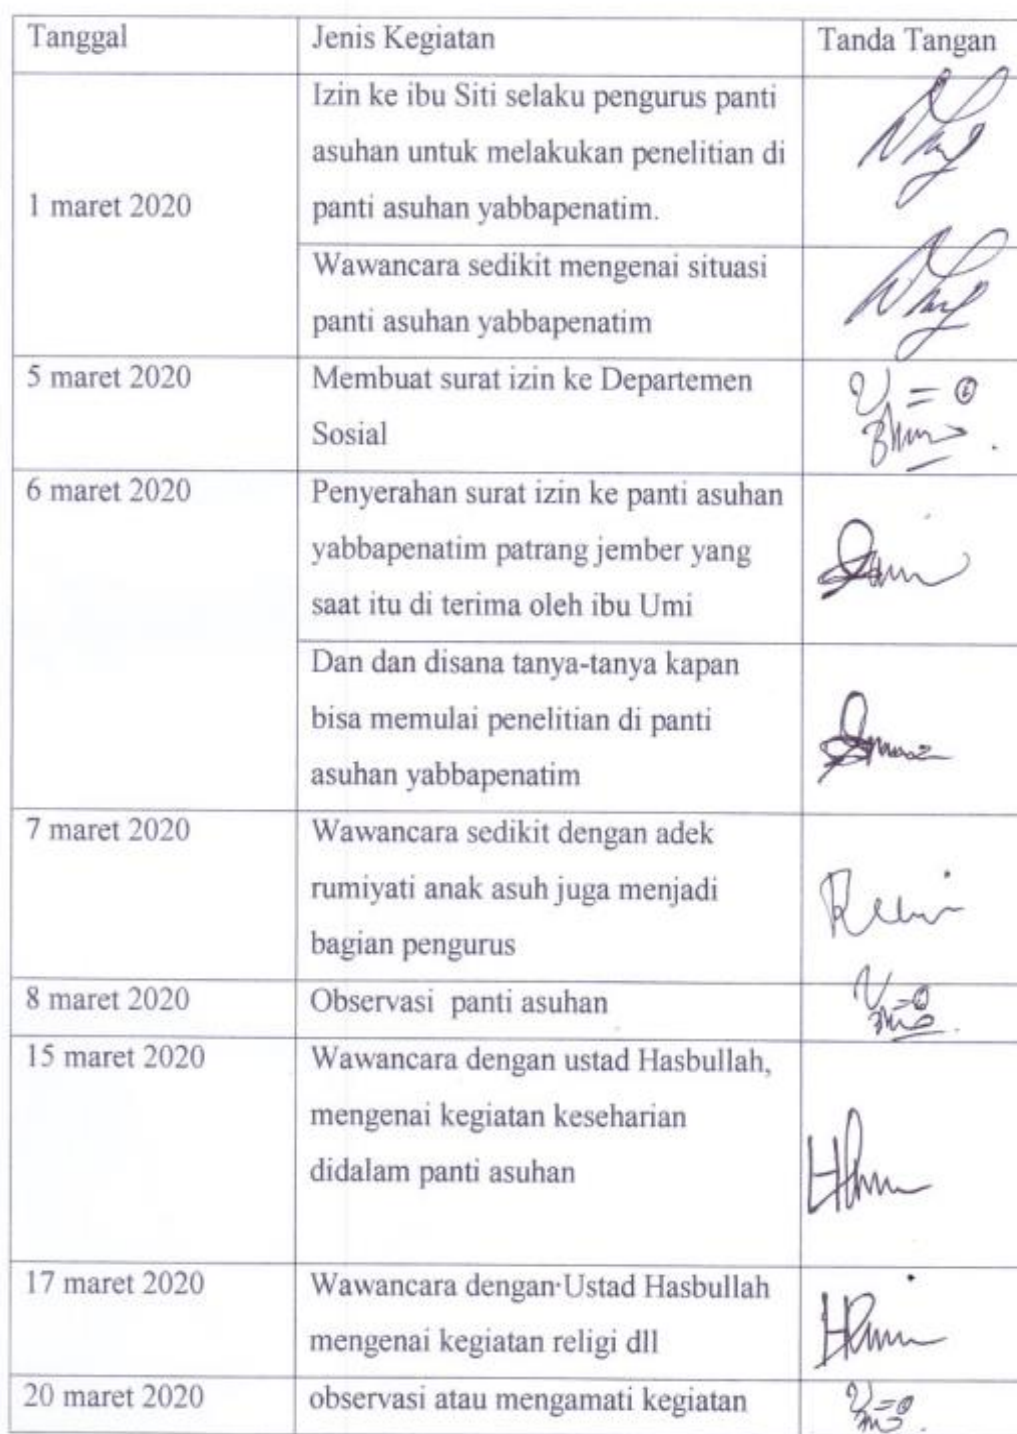 Tanggal
Jenis Kegiatan
Tanda Tangan
1 maret 2020
Izin ke ibu Siti selaku pengurus panti
asuhan untuk melakukan penelitian di
panti asuhan yabbapenatim.
Wawancara sedikit mengenai situasi
panti asuhan yabbapenatim
5 maret 2020
Membuat surat izin ke Departemen
Sosial
6 maret 2020
Penyerahan surat izin ke panti asuhan
yabbapenatim patrang jember yang
saat itu di terima oleh ibu Umi
Dan dan disana tanya-tanya kapan
bisa memulai penelitian di panti
asuhan yabbapenatim
7 maret 2020
Wawancara sedikit dengan adek
rumiyati anak asuh juga menjadi
bagian pengurus
8 maret 2020
Observasi panti asuhan
15 maret 2020
Wawancara dengan ustad Hasbullah,
mengenai kegiatan keseharian
didalam panti asuhan
17 maret 2020
Wawancara dengan Ustad Hasbullah
mengenai kegiatan religi dll
20 maret 2020
observasi atau mengamati kegiatan